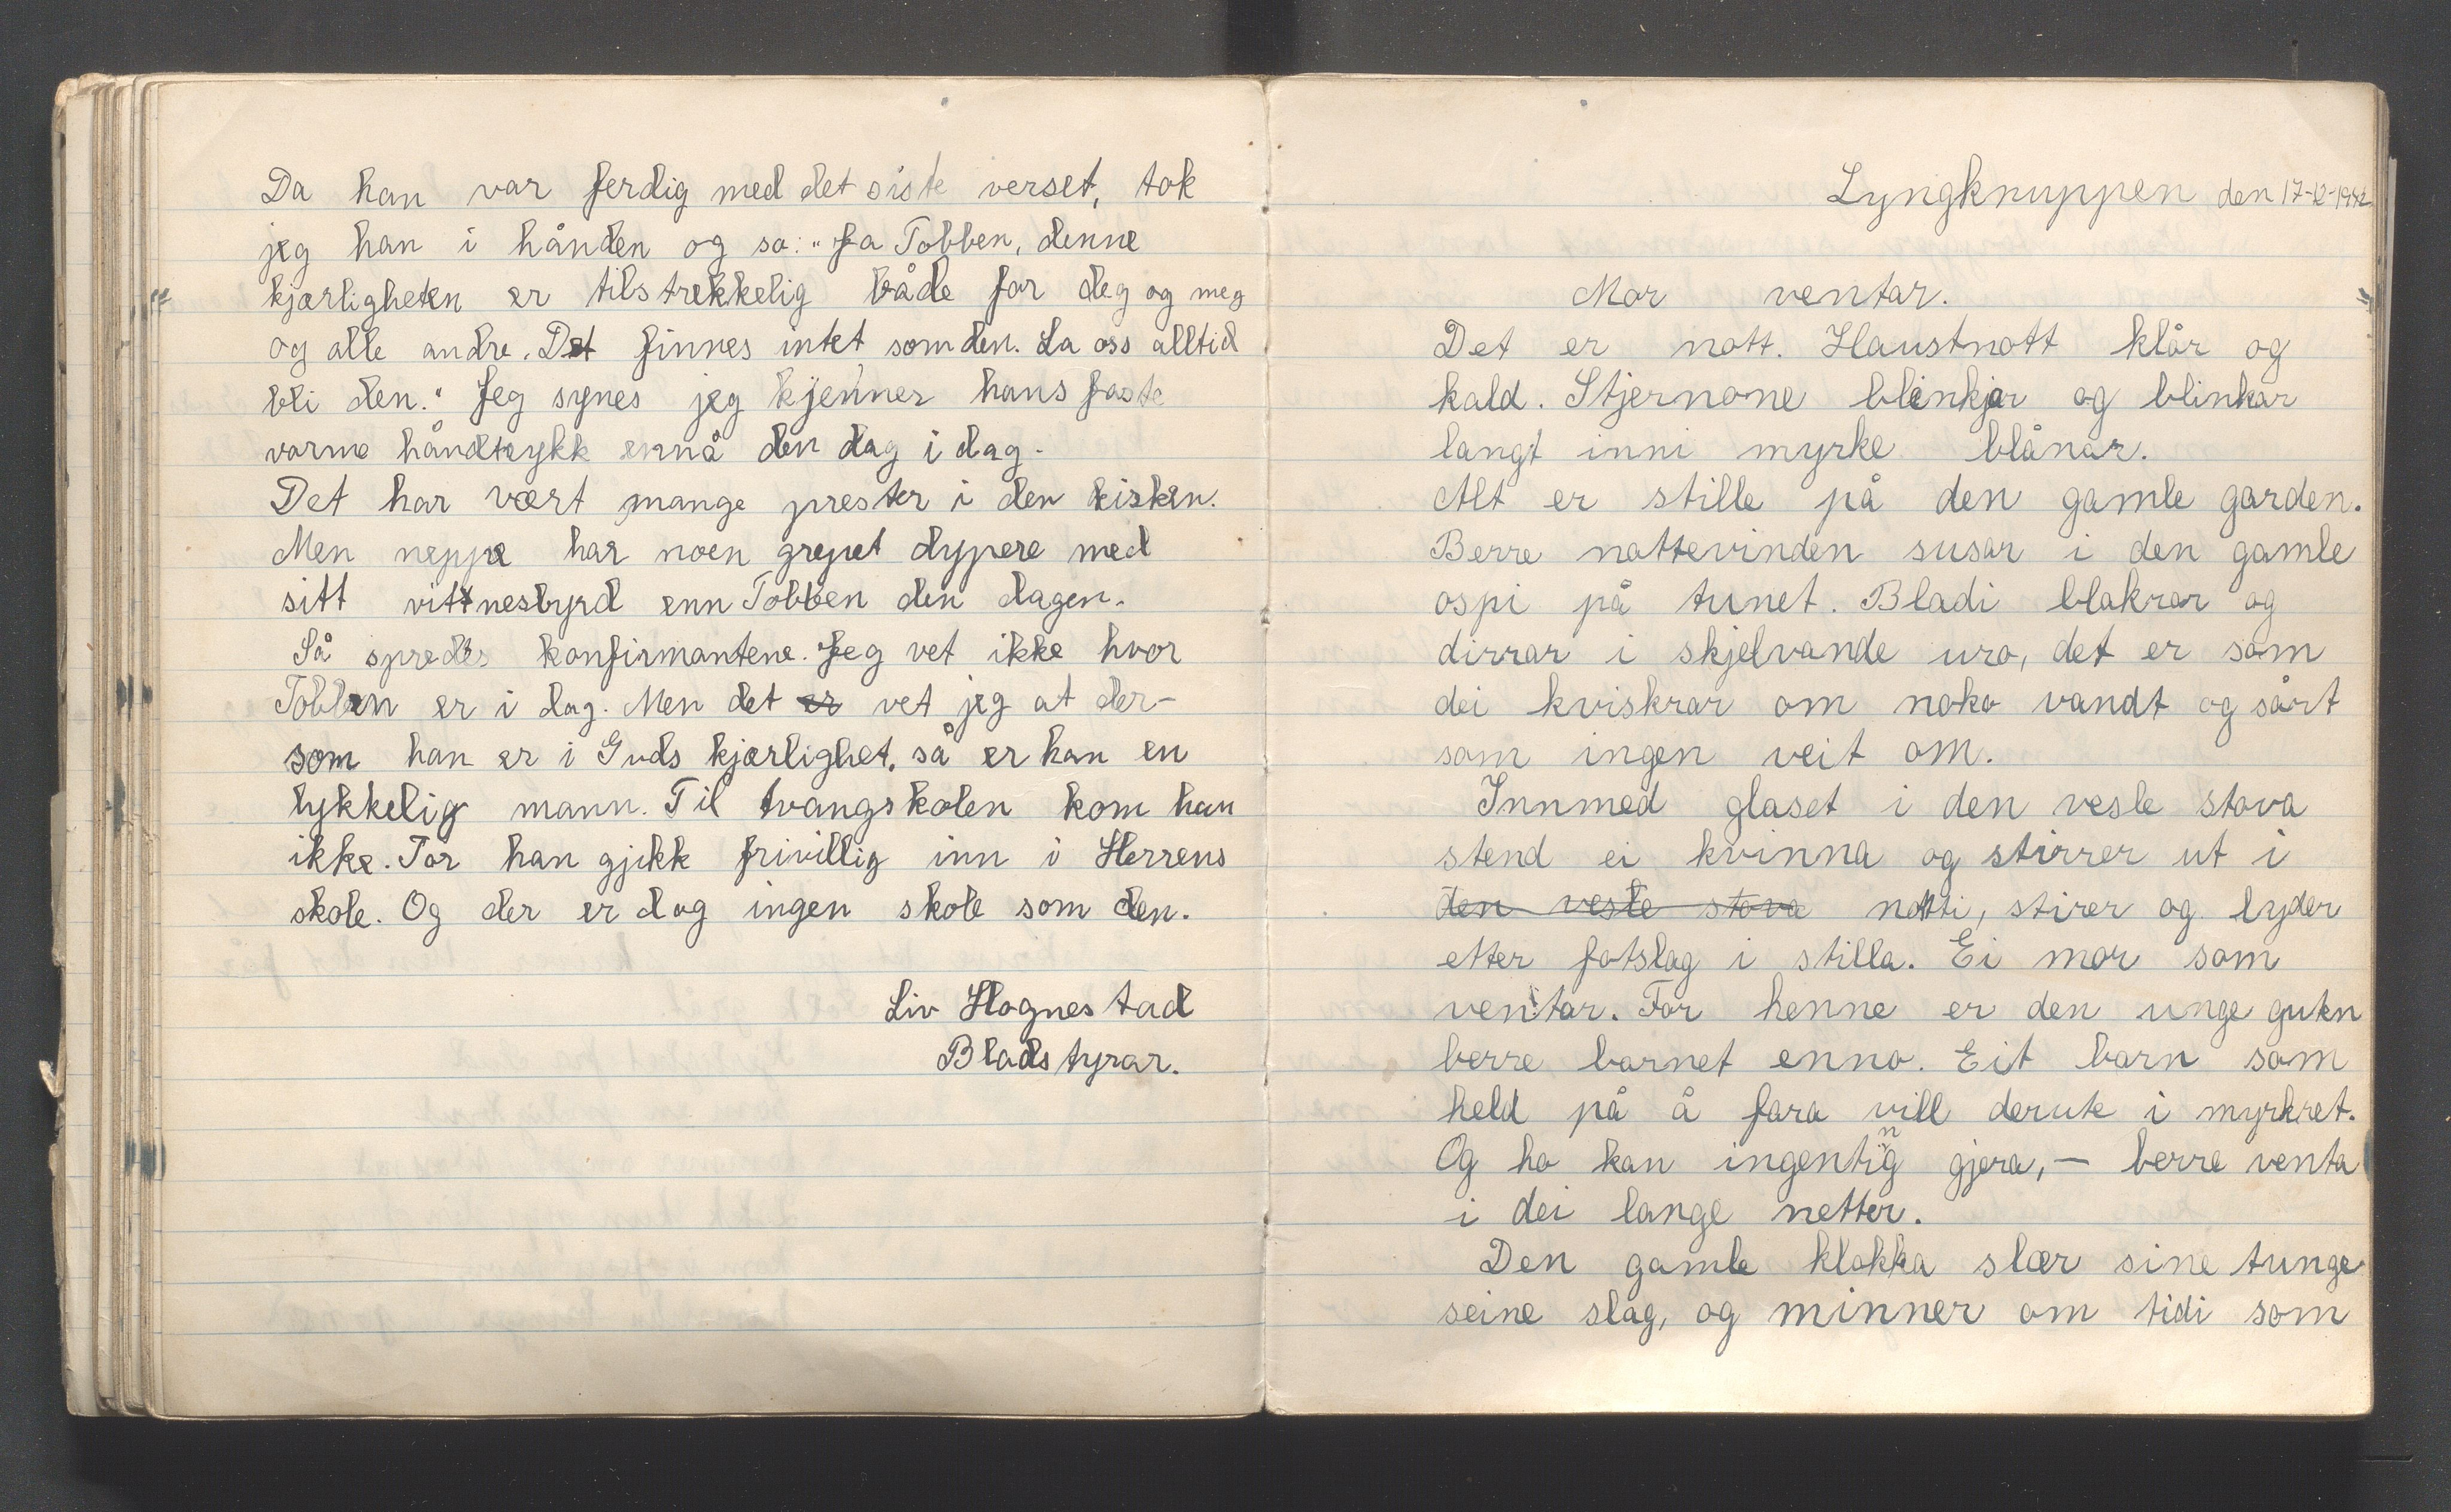 Da han var ferdig med det siste verset, tok
jeg han i hånden og sa: "Ja Tobben, denne
kjærligheten er tilstrekkelig både for deg og meg
og alle andre. Det finnes intet som den. La oss alltid
bli den." Jeg synes jeg kjenner hans faste
varme håndtrykk ennå den dag i dag.
Det har vært mange prester i den kisken.
Men neppe har noen grepet dypere med
sitt vittnesbyrd enn Tobben den dagen.
Så spredes konfirmantene. Jeg vet ikke hvor
Tobben er i dag. Men det er vet jeg at der-
som han er i Guds kjærlighet, så er han en
lykkelig mann. Til tvangskolen kom han
ikke. For han gjikk frivillig inn i Herrens
skole. Og der er dog ingen skole som den.
Liv Hognestad
Bladstyrar.
Lyngknuppen den 17-12-1942
Mor ventar.
Det er nott. Haustnott klår og
kald. Stjernone blinkjar og blinkar
langt inni myrke blånar.
Alt er stille på den gamle garden.
Berre nattevinden susar i den gamle
ospi på tunet. Bladi blakrar og
dirrar i skjelvande uro, det er som
dei kviskrar om noko vandt og sårt
som ingen veit om.
Innmed glaset i den vesle stova
stend ei kvinna og stirrer ut i
den vesle stova notti, stirer og lyder
etter fotslag i stilla. Ei mor som
ventar. For henne er den unge guten
berre barnet enno. Eit barn som
held på å fara vill derute i myrkret.
Og ho kan ingenting gjera, – berre venta
i dei lange netter.
Den gamle klokka slær sine tunge
seine slag, og minner om tidi som